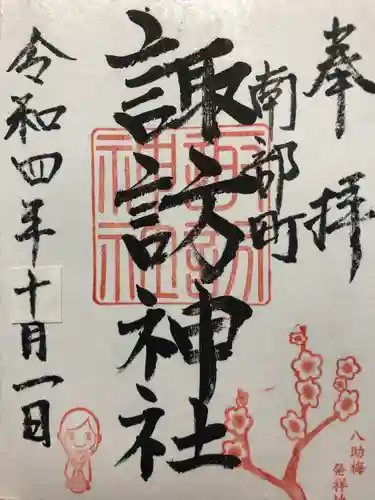 奉拝
南部町
諏訪神社
令和四年十月一日
諏訪神社
八助梅
発祥地